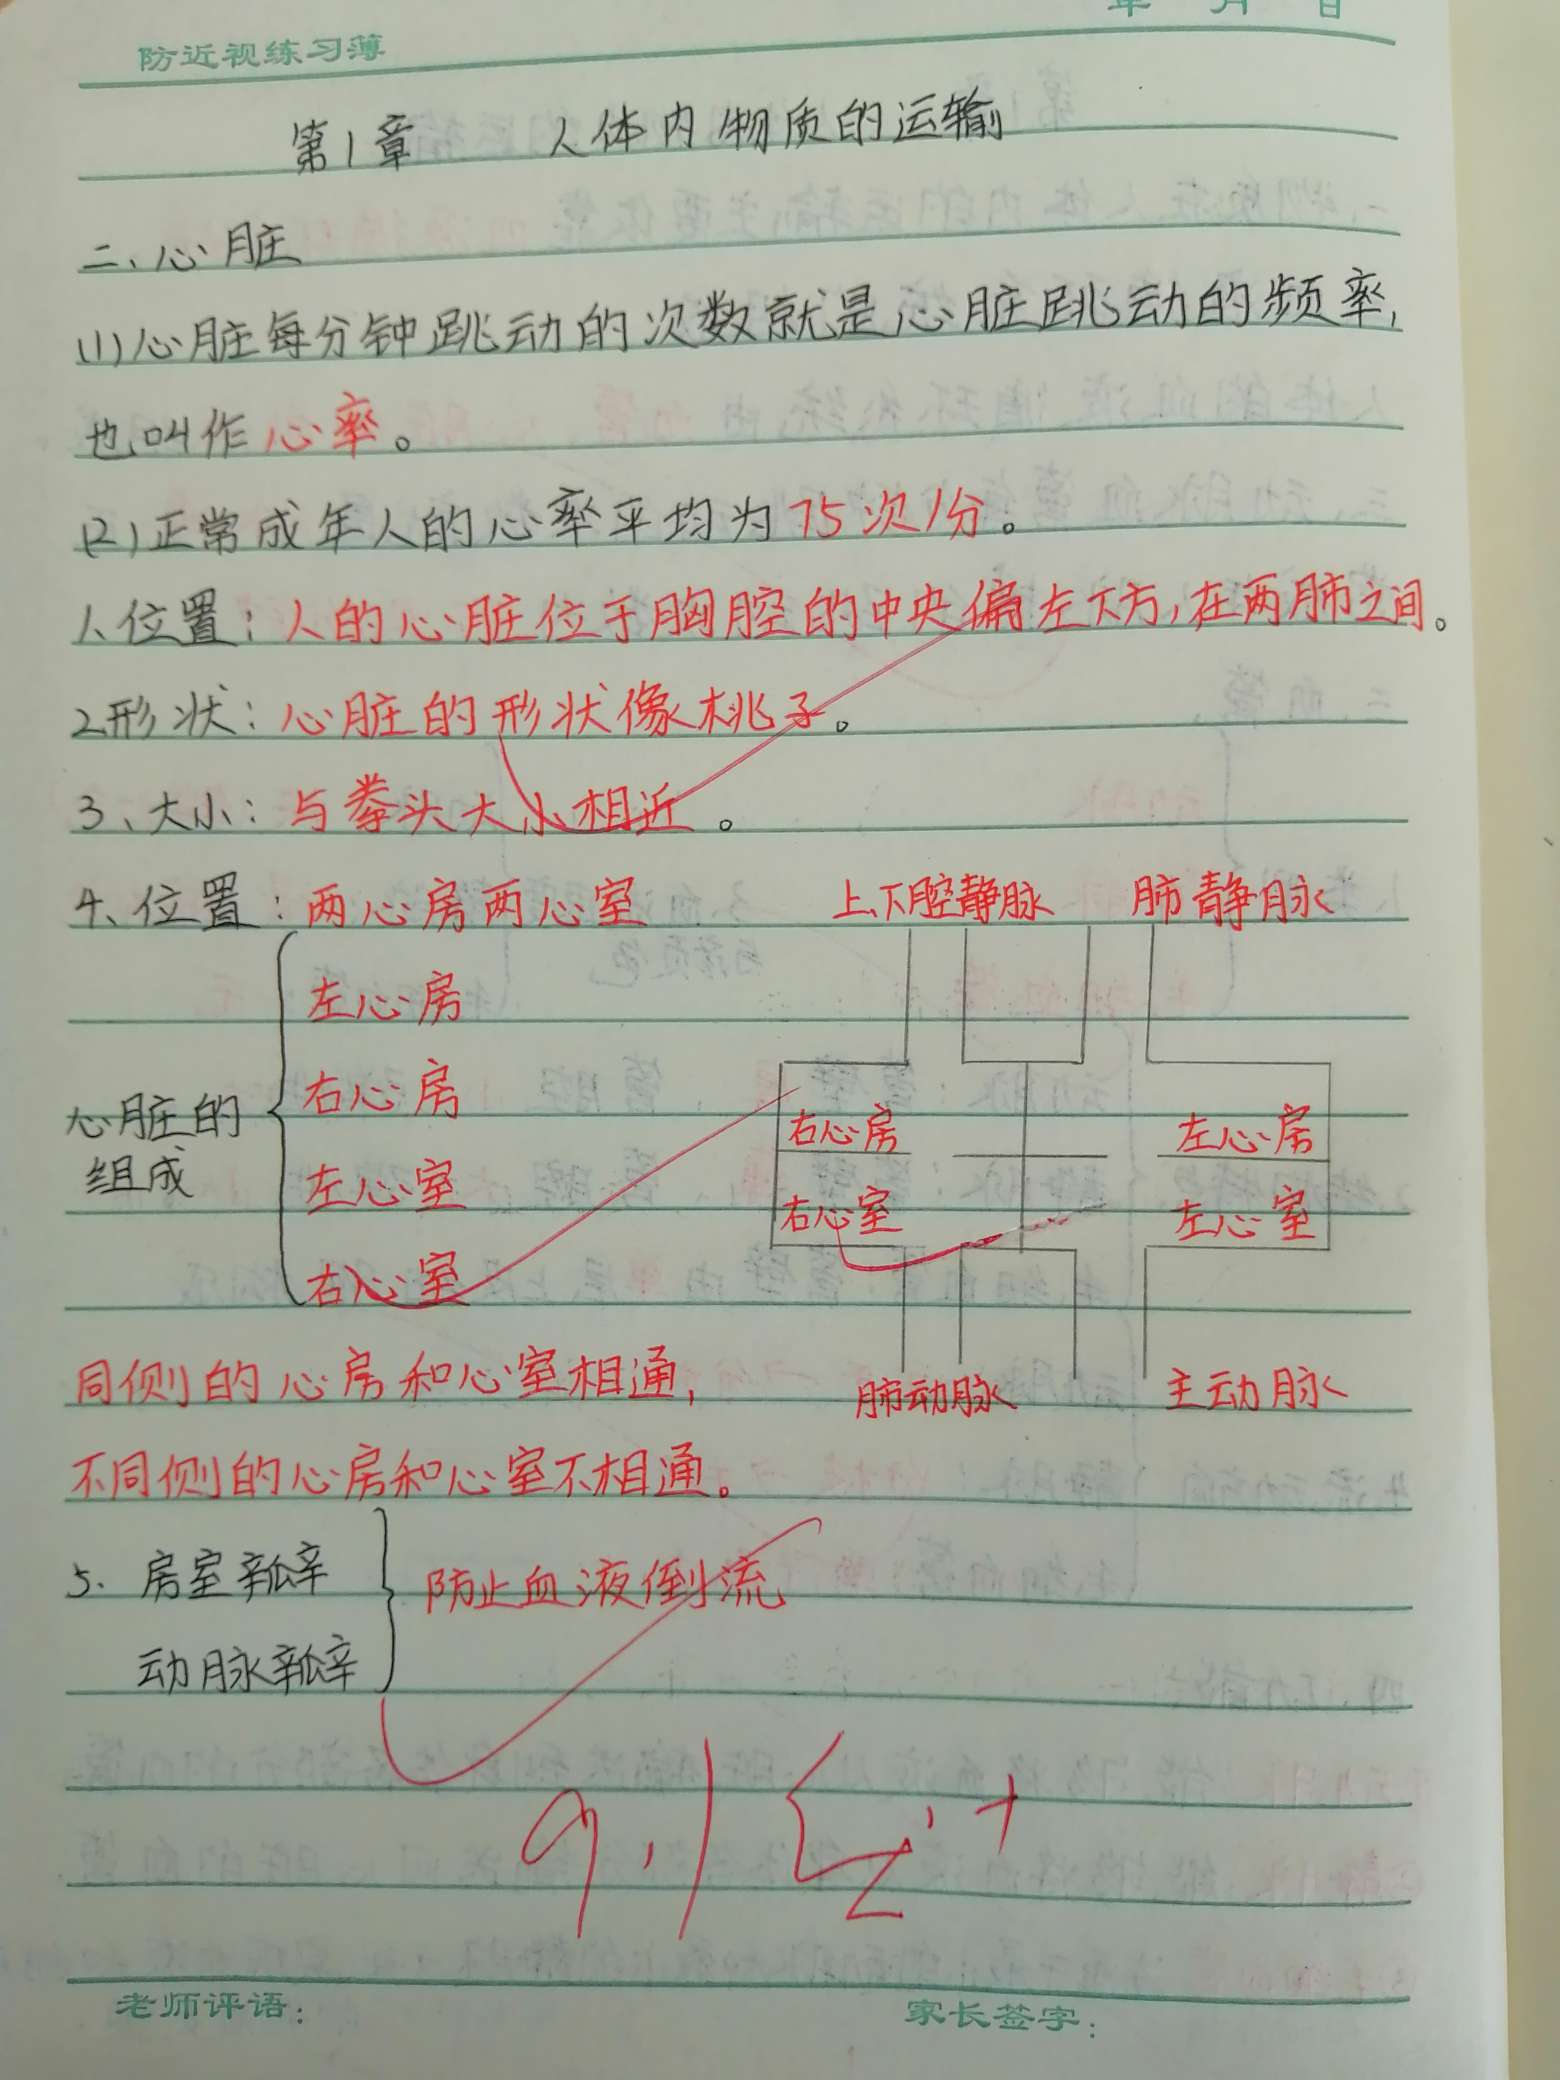 年 月 日
防近视练习薄
第1章 人体内物质的运输
二、心脏
(1)心脏每分钟跳动的次数就是心脏跳动的频率,
也叫作心率。
(2)正常成年人的心率平均为75次/分。
1、位置:人的心脏位于胸腔的中央偏左下方,在两肺之间。
2形状:心脏的形状像桃子。
3、大小:与拳头大小相近。
4、位置:两心房两心室
上、下腔静脉 肺静脉
左心房
右心房
心脏的
组成
左心室
右心室
右心房 左心房
右心室 左心室
肺动脉 主动脉
同侧的心房和心室相通,
不同侧的心房和心室不相通。
5. 房室瓣
动脉瓣
防止血液倒流
9.1
老师评语:
家长签字: